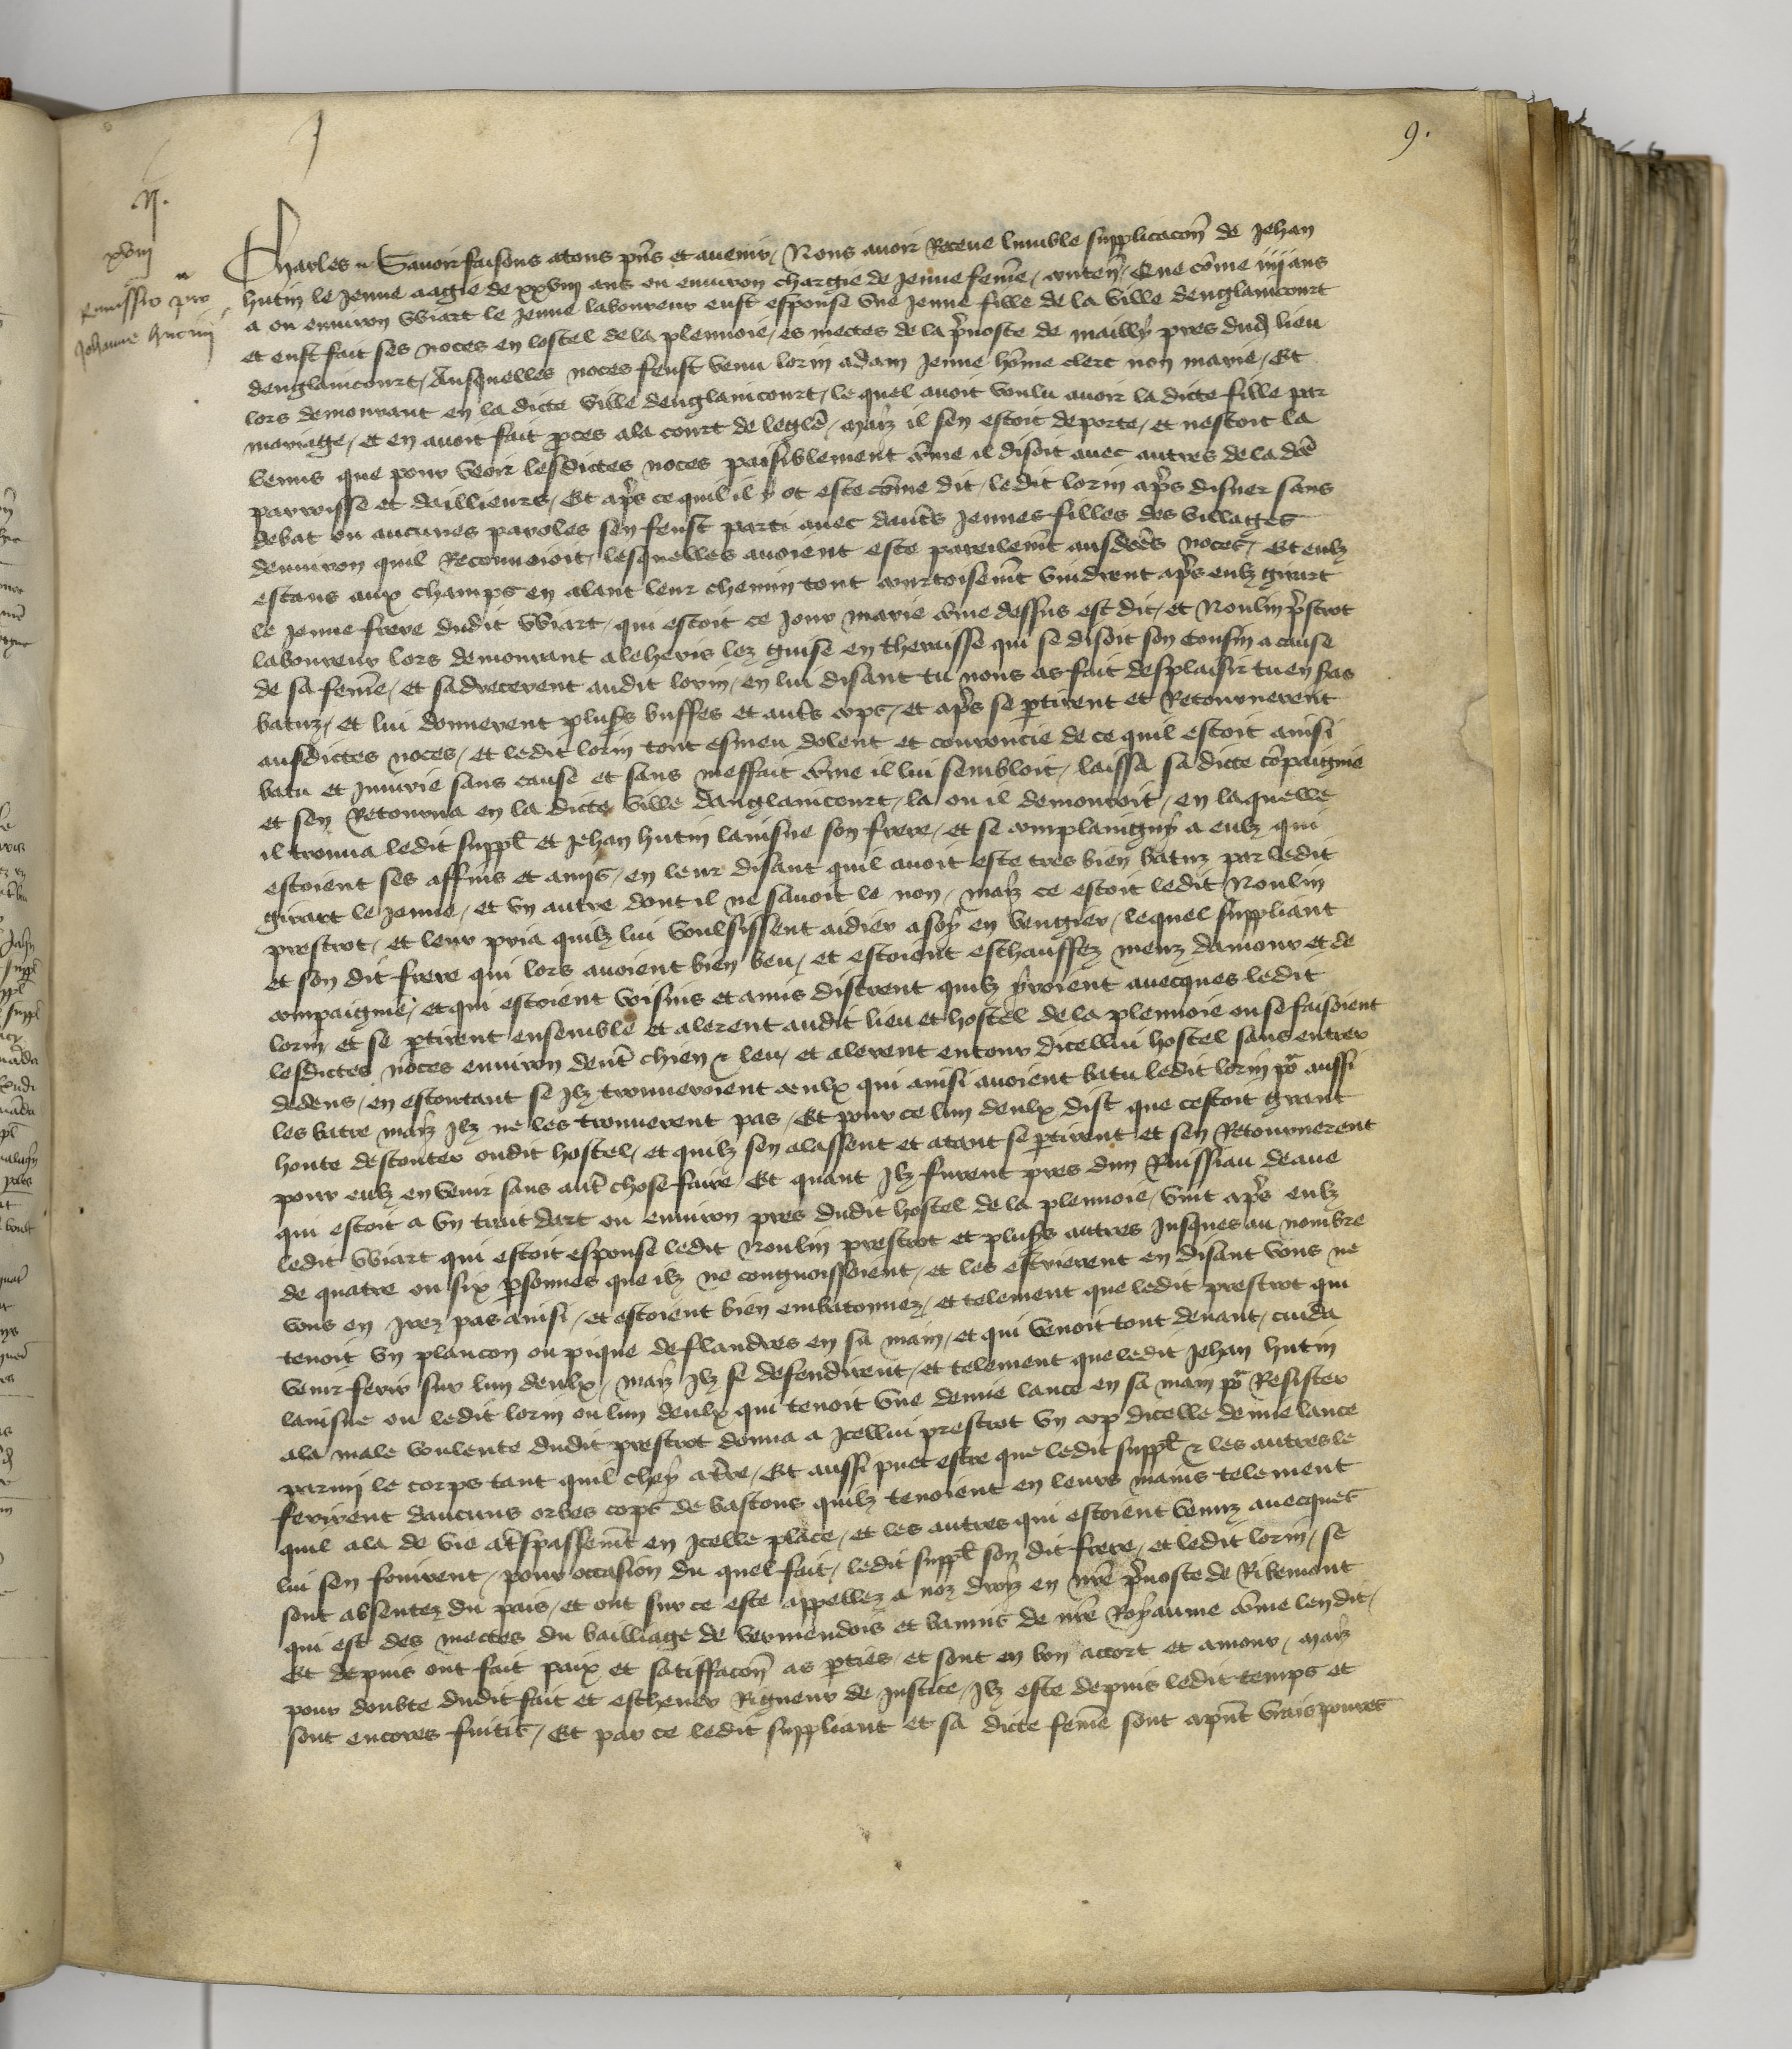 9.
II.
xviii
Remissio pro
Johanne hutini
Charles etc Savoir faisons a tous pns et avenir / Nous avoir Receue lumble supplicacon de Jehan
hutin le Jeune aagie de xxviii ans ou environ chargie de Jeune feme / conten / Que come iiij ans
a ou environ Wiart le Jeune laboureur eust espouse une Jeune fille de la ville denglaincourt
et eust fait ses noces en lostel de la plennoie / es mectes de la pvoste de mailly pres dud lieu
denglaincourt / Ausquelles noces feust venu lorin adam Jeune home clerc non marie / Et
lors demourant en la dicte ville denglaincourt / le quel avoit voulu avoir la dicte fille par
mariage / et en avoit fait pces a la court de legle / maiz il sen estoit deporte / et nestoit la
venus que pour veoir lesdictes noces paisiblement come il disoit avec autres de la dce
parroisse et dailleurs / Et aps ce quil il y ot este come dit / ledit lorin aps disner sans
debat ou aucunes paroles sen feust parti avec dauts Jeunes filles des villages
denviron quil Recouvoioit / lesquelles avoient este pareillemt ausdces noces / Et eulz
estans aux champs en alant leur chemin tout courtoisemt vindrent aps eulz girart
le Jeune frere dudit Wiart / qui estoit ce Jour marie come dessus est dit / et Noulin pstrot
laboureur lors demourant a leheris lez guise en theraisse qui se disoit son cousin a cause
de sa feme / et sadrecerent audit lorin / en lui disant tu nous as fait desplaisir tu en seras
batuz / et lui donnerent plusrs buffes et auts cops / et aps se ptirent et Retournerent
ausdictes noces / et ledit lorin tout esmeu dolent et couroucie de ce quil estoit ainsi
batu et Injurie sans cause et sans meffait come il lui sembloit / laissa sa dicte compaignie
et sen Retourna en la dicte ville danglaincourt / la ou il demouroit / en laquelle
il trouva ledit suppl et Jehan hutin lainsne son frere / et se complaingny a eulz qui
estoient ses affins et amis / en leur disant quil avoit este tres bien batuz par ledit
girart le Jeune / et un autre dont il ne savoit le non / maiz ce estoit ledit Noulin
prestrot / et leur pria quilz lui voulsissent aidier a soy en vengier / lequel suppliant
et son dit frere qui lors avoient bien beu / et estoient eschauffez meuz damour et de
compaignie / et qui estoient voisins et amis distrent quilz yroient avecques ledit
lorin et se ptirent ensemble et alerent audit lieu et hostel de la plennoie ou se faisoient
lesdictes noces environ dent chien et leu / et alerent entour dicellui hostel sans entrer
dedens / en escoutant se Ilz trouveroient ceulx qui ainsi avoient batu ledit lorin por aussi
les batre maiz Ilz ne les trouverent pas / Et pour ce lun deulx dist que cestoit grant
honte descouter oudit hostel / et quilz sen alassent et atant se ptirent et sen Retournerent
pour eulz en venir sans aut chose faire Et quant Ilz furent pres dun Ruissiau deaue
qui estoit a un trait dart ou environ pres dudit hostel de la plennoie / vint aps eulz
ledit Wiart qui estoit espouse ledit Noulin prestrot et plusrs autres Jusques au nombre
de quatre ou six psonnes que ilz ne congnoissoient / et les escrierent en disant vous ne
vous en Irez pas ainsi / et estoient bien embatonnez / et telement que ledit prestrot qui
tenoit un plancon ou pique de flandres en sa main / et qui venoit tout devant / cuida
venir ferir sur lun deulx / maiz Ilz se defendirent / et telement que ledit Jehan hutin
lainsne ou ledit lorin ou lun deulx qui tenoit une demie lance en sa main por Resister
a la male voulente dudit prestrot donna a Icellui prestrot un cop dicelle demie lance
parmy le corps tant quil chey a tre / Et aussi puet estre que ledit suppl et les autres le
ferirent daucuns orbes cops de bastons quilz tenoient en leurs mains telement
quil ala de vie a tspassemt en Icelle place / et les autres qui estoient venuz avecques
lui sen fouirent / pour occasion du quel fait / ledit suppl son dit frere / et ledit lorin / se
sont absentez du pais / et ont sur ce este appellez a noz droiz en nre pvoste de Ribemont
qui est des mectes du bailliage de vermendois et bannis de nre Royaume come len dit /
Et depuis ont fait paix et satiffacon as pties et sont en bon accort et amour / maiz
pour doubte dudit fait et eschever Rigueur de Justice / Ilz este depuis ledit temps et
sont encores fuitis / Et par ce ledit suppliant et sa dicte feme sont apnt vrais poures